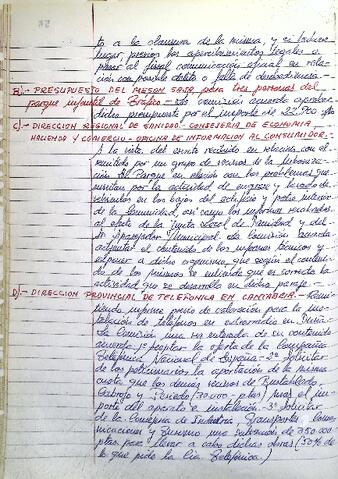 to a la clausura de la misma, y si hubiere
lugar, previos los apercibimientos legales o
pasar al fiscal comunicación oficial en rela-
ción con posible delito o falta de desobediencia.-
B).- PRESUPUESTO DEL MESON SAJA para tres personas del
parque infantil de tráfico.- La Comisión acuerda aprobar
dicho presupuesto por el importe de 22.700 pts
C).- DIRECCION REGIONAL DE SANIDAD- CONSEJERIA DE ECONOMIA
HACIENDA Y COMERCIO - OFICINA DE INFORMACION AL CONSUMIDOR.-
A la vista del escrito recibido en relación con el
remitido por un grupo de vecinos de la Urbaniza-
ción El Parque en relación con los problemas que
suscitan por la actividad de engrase y lavado de
vehículos en los bajos del edificio y patio interior
de la Comunidad, así como los informes realizados
al efecto de la Junta Local de Sanidad y del
Aparejador Municipal, la Comisión acuerda
el contenido de los informes técnicos y
exponer a dicho organismo que según el conteni-
do de los mismos se entiende que es correcta la
actividad que se desarrolla en dicho paraje.-
D).- DIRECCION PROVINCIAL DE TELEFONICA EN CANTABRIA.-
informe previo de valoración para la ins-
talación de teléfonos en extrarradio
la Comisión una vez enterada de su contenido
acuerda: 1º Aceptar la oferta de la Compañía
Telefónica Nacional de España - 2º Solicitar
de los peticionarios la aportación de la misma
cuota que los demás vecinos de
y (30.000 ptas) más el im-
porte del aparato e instalación - 3º Solicitar
de la Consejería de Industria, Transportes, Comu-
nicaciones y Turismo una subvención de 750.000
ptas para llevar a cabo dichas obras (50% de
lo que pide la Cía. Telefónica)